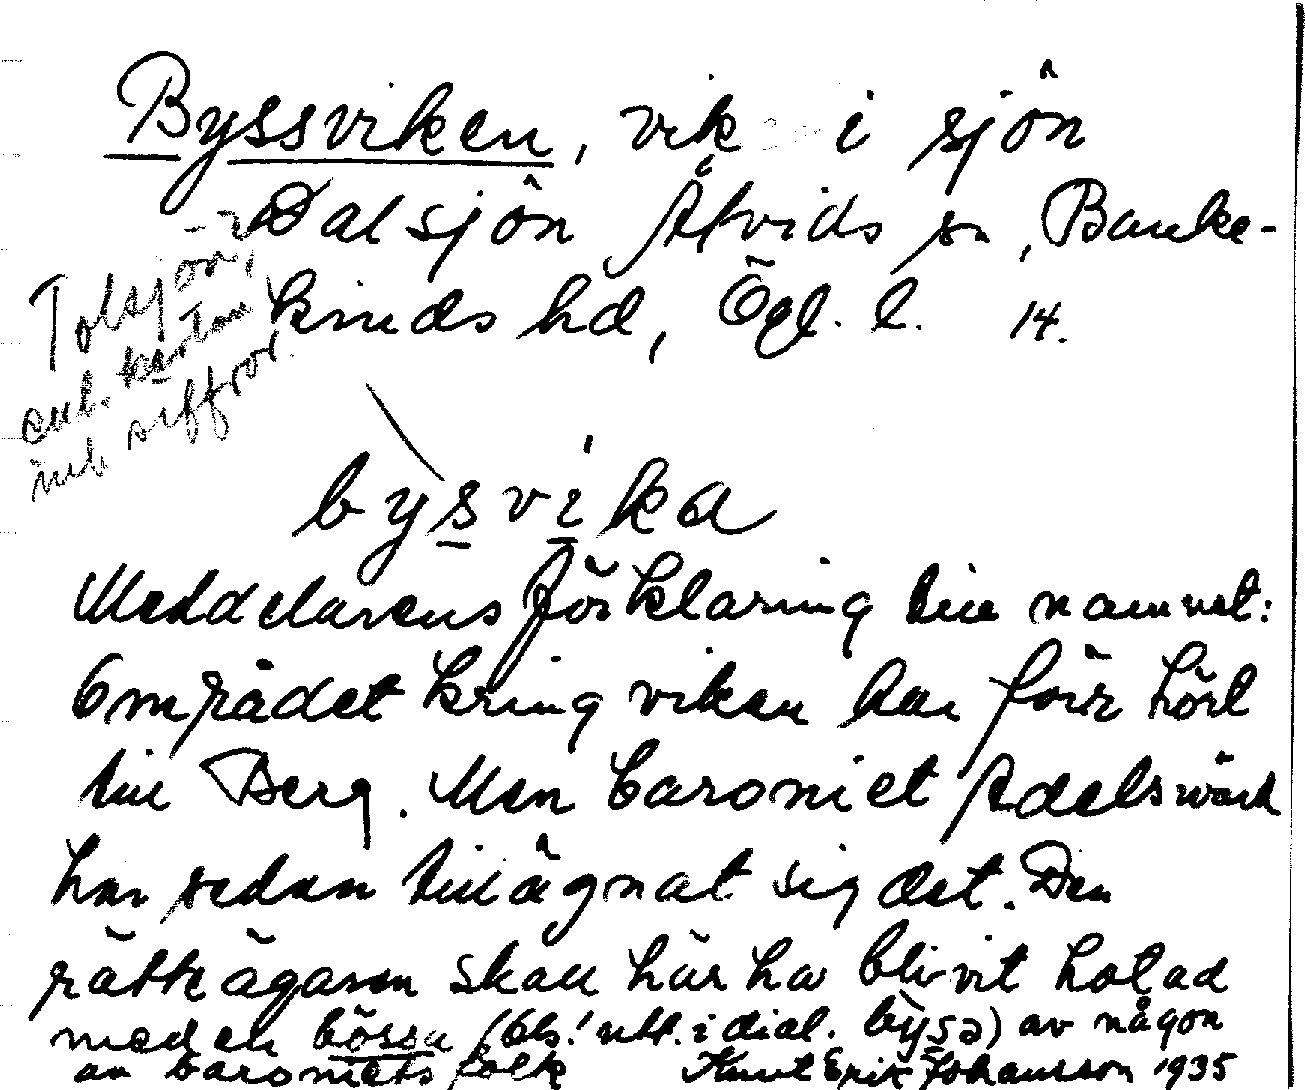 Byssviken, vik i sjön
Dalsjön Åtvids sn, Banke-
kinds hd, Ögl. l. 14.
Tolsjön,
enl. kartan
inb siffror
bysvika
Meddelarens förklaring till namnet:
Området kring viken har förr hört
till Berg. Men baroniet Adelswärd
har sedan tillägnat sig det. Den
rätte ägaren skall här ha blivit hotad
med en bössa (obs.! utt. i dial. bỳsa) av någon
av baroniets folk Knut Erik Johansson 1935